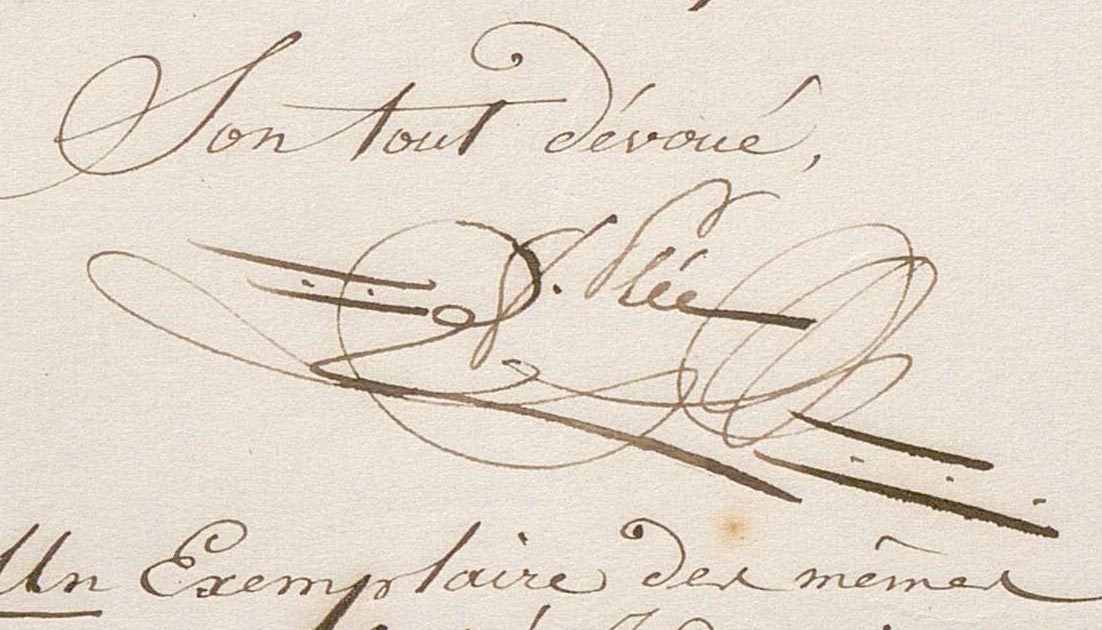 Son tout dévoué,
Plée
Un Exemplaire des mêmes